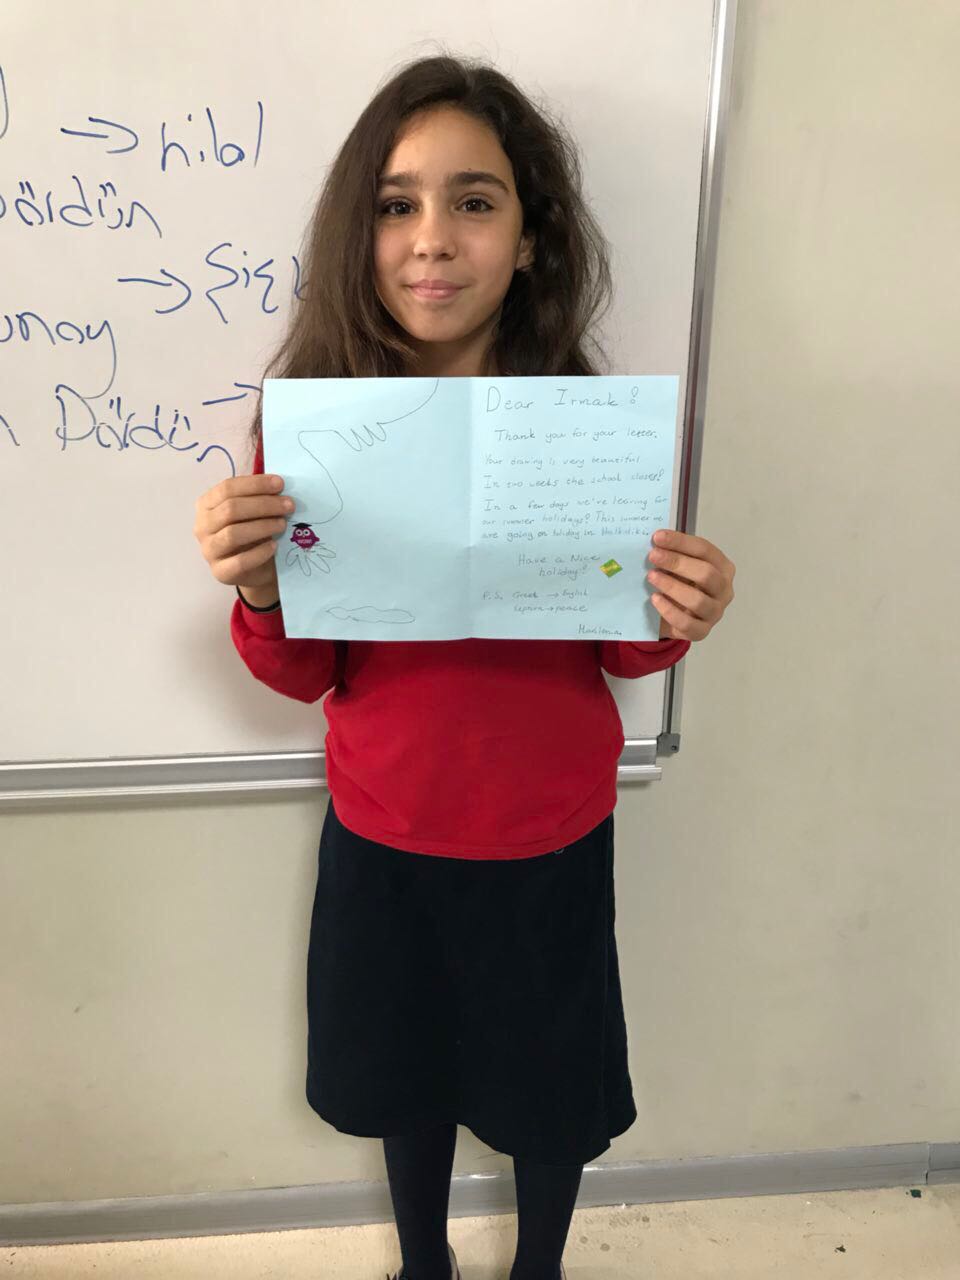 → hilal
Dördün
→ Şişk
unay
n Dördün →
Dear Irmak!
Thank you for your letter.
Your drawing is very beautiful
In two weeks the school closes!
In a few days we're leaving for
our summer holidays! This summer we
are going on holiday in Halkidiki.
Have a Nice
holiday!
P.S. Greek → English
→ peace